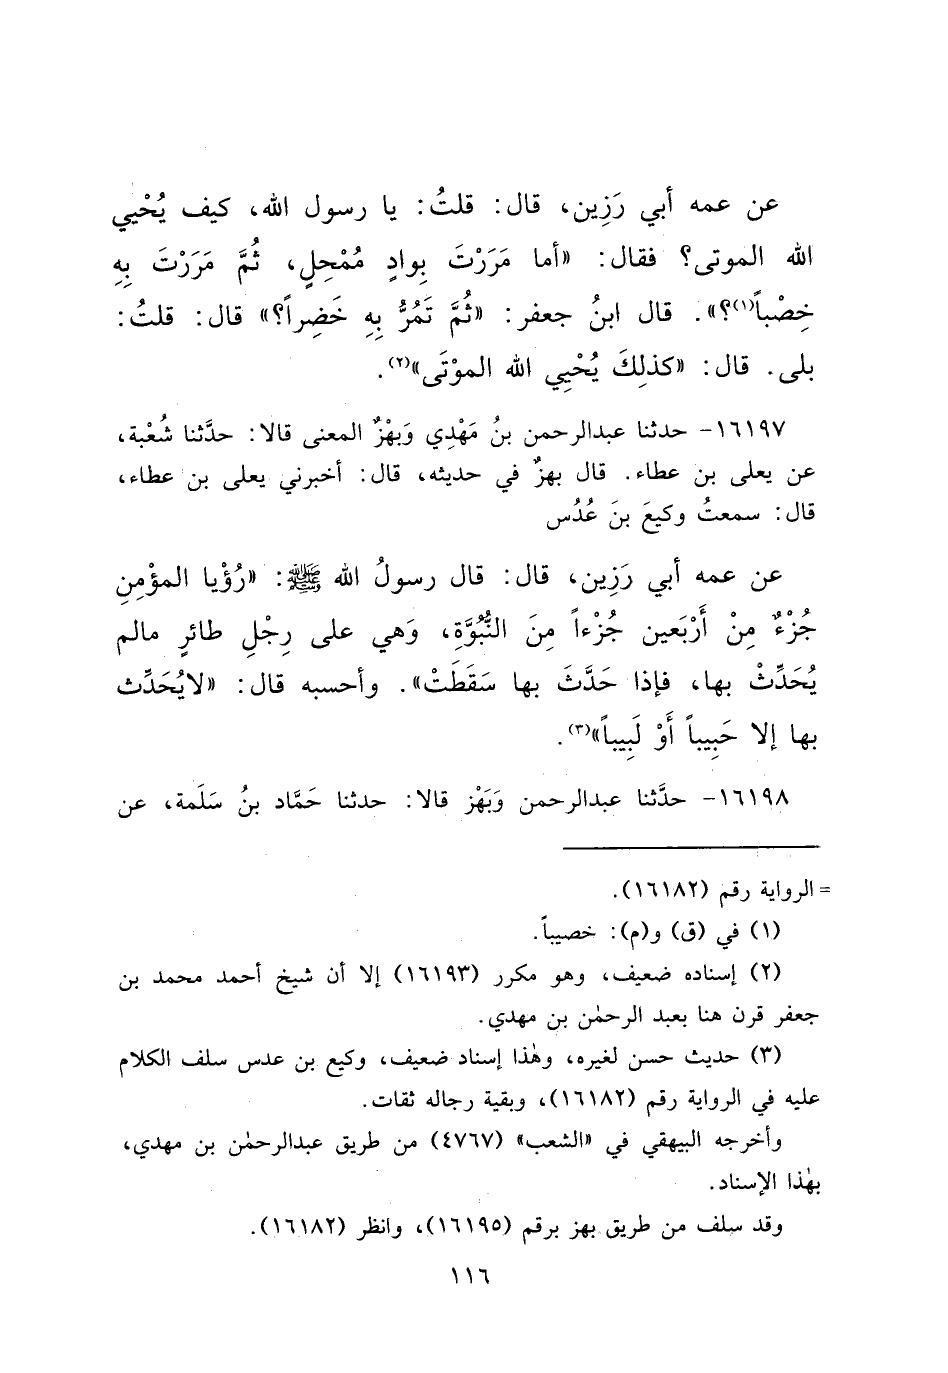 عن عمه أبي رَزِين، قال: قلتُ: يا رسول الله، كيف يُحْيي
الله الموتى؟ فقال: «أما مَرَرْتَ بِوادٍ مُمْحِلٍ، ثُمَّ مَرَرْتَ بِهِ
خِصْباً(١)؟». قال ابنُ جعفر: «ثُمَّ تَمُرُّ بِهِ خَضِراً؟» قال: قلتُ:
بلى. قال: «كذلِكَ يُحْيِي الله الموْتَى»(٢).
١٦١٩٧- حدثنا عبدالرحمن بنُ مَهْدِي وَبهْزٌ المعنى قالا: حدَّثنا شُعْبة،
عن يعلى بن عطاء. قال بهزٌ في حديثه، قال: أخبرني يعلى بن عطاء،
قال: سمعتُ وكيعَ بنَ عُدُس
عن عمه أبي رَزِين، قال: قال رسولُ الله ﷺ: «رُؤْيا المؤْمِنِ
جُزْءٌ مِنْ أَرْبَعين جُزْءاً مِنَ النُّبُوَّةِ، وَهي على رِجْلِ طائرٍ مالم
يُحَدِّثْ بها، فإذا حَدَّثَ بها سَقَطَتْ». وأحسبه قال: «لايُحَدِّث
بها إلا حَبِيباً أَوْ لَبِيباً»(٣).
١٦١٩٨- حدَّثنا عبدالرحمن وَبَهْز قالا: حدثنا حَمَّاد بنُ سَلَمة، عن
= الرواية رقم (١٦١٨٢).
(١) في (ق) و(م): خصيباً.
(٢) إسناده ضعيف، وهو مكرر (١٦١٩٣) إلا أن شيخ أحمد محمد بن
جعفر قرن هنا بعبد الرحمٰن بن مهدي.
(٣) حديث حسن لغيره، وهٰذا إسناد ضعيف، وكيع بن عدس سلف الكلام
عليه في الرواية رقم (١٦١٨٢)، وبقية رجاله ثقات.
وأخرجه البيهقي في «الشعب» (٤٧٦٧) من طريق عبدالرحمٰن بن مهدي،
بهٰذا الإسناد.
وقد سلف من طريق بهز برقم (١٦١٩٥)، وانظر (١٦١٨٢).
١١٦